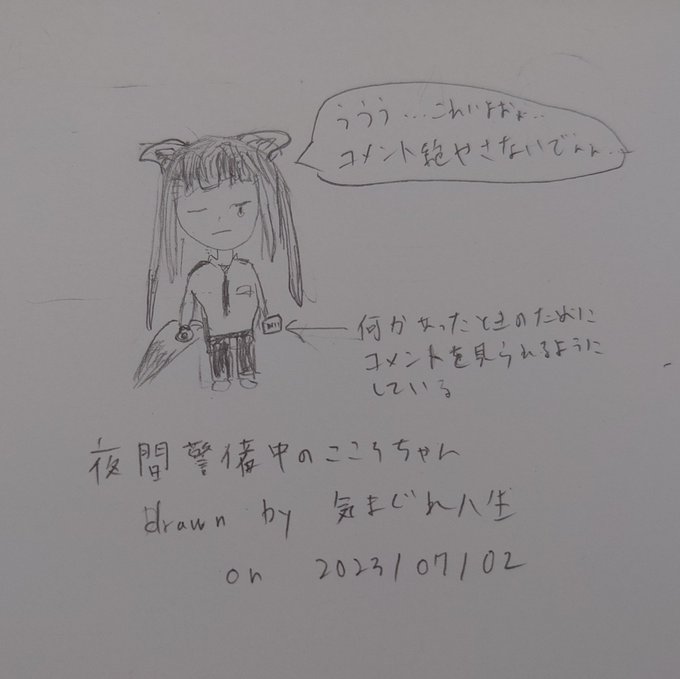 ううう…こわいよおぉ…
コメント絶やさないでぇぇ…
何かあったときのために
コメントを見られるように
している
夜間警備中のこころちゃん
drawn by 気まぐれ人生
on 2023/07/02